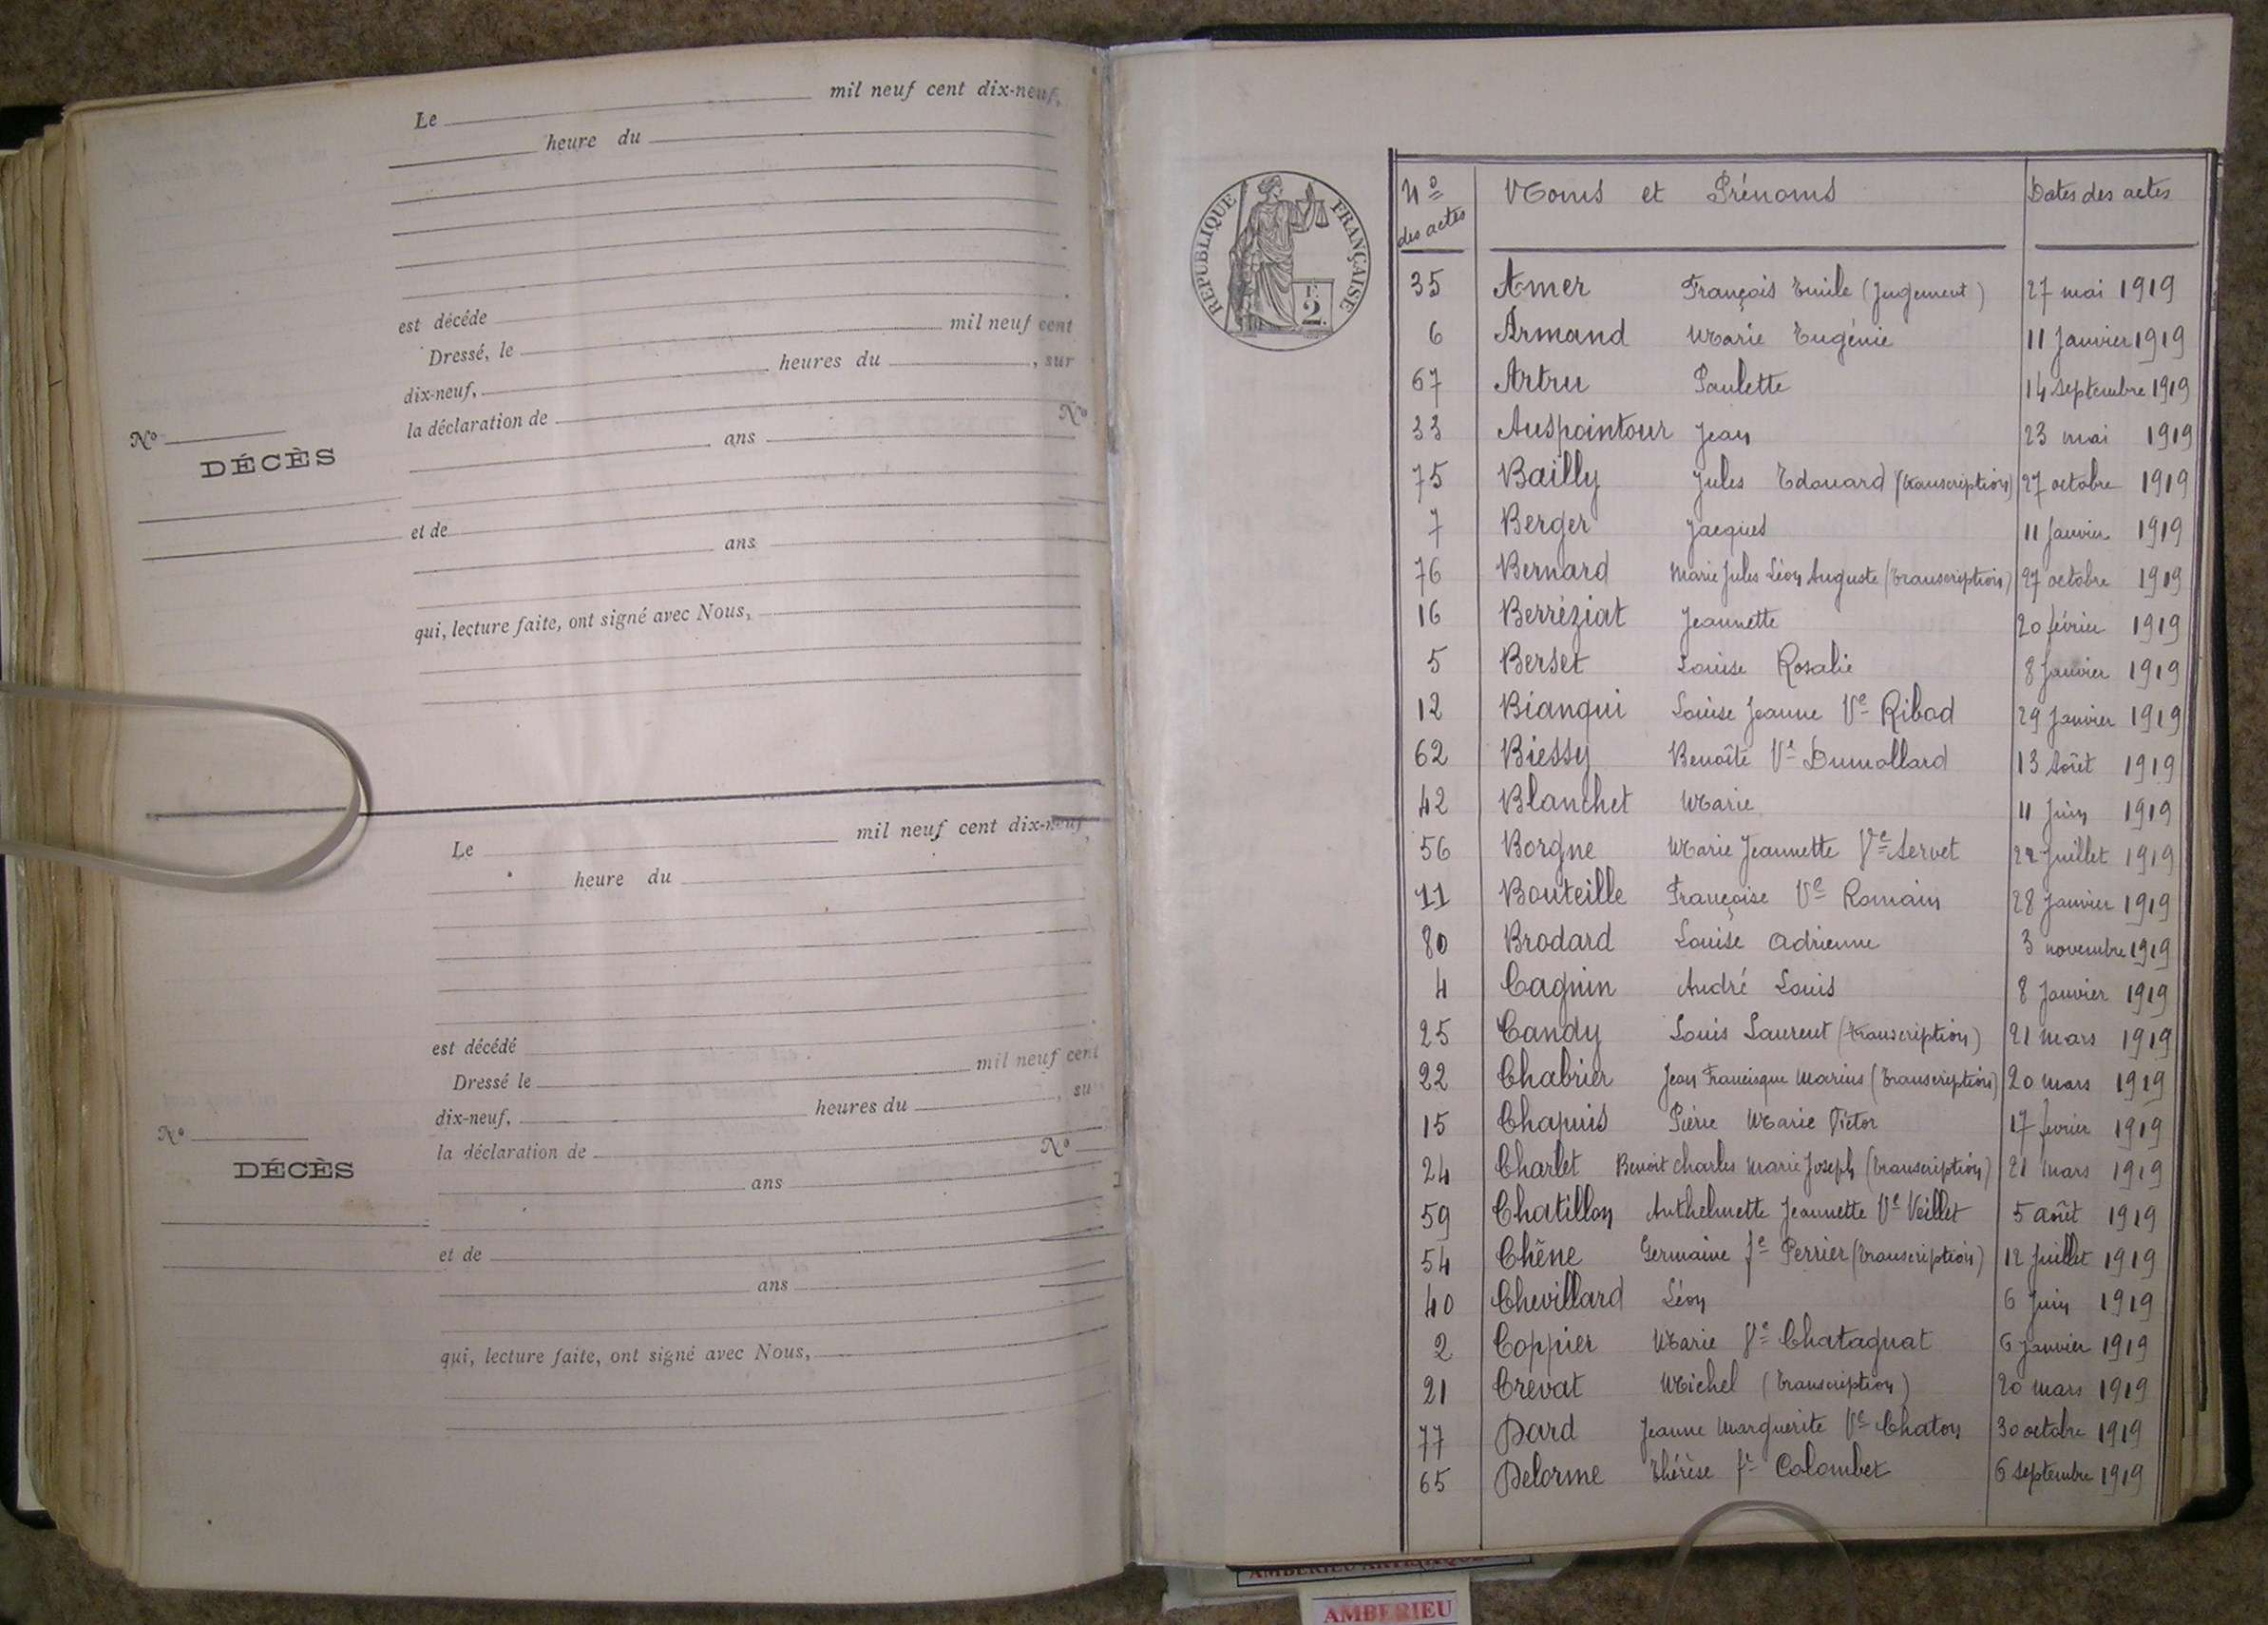 Le mil neuf cent dix-neuf,
heure du
est décédé
Dressé, le mil neuf cent
dix-neuf, heures du , sur
la déclaration de
ans
et de
ans
qui, lecture faite, ont signé avec Nous,
No
DÉCÈS
No
Le mil neuf cent dix-neuf
heure du
est décédé
Dressé le mil neuf cent
dix-neuf, heures du , su
la déclaration de
ans
et de
ans
qui, lecture faite, ont signé avec Nous,
No
DÉCÈS
No
REPUBLIQUE FRANÇAISE
F.
2.
No des actes Noms et Prénoms Dates des actes
35 Amer François Emile (Jugement) 27 mai 1919
6 Armand Marie Eugénie 11 Janvier 1919
67 Artru Paulette 14 Septembre 1919
33 Auspointour Jean 23 mai 1919
75 Bailly Jules Edouard (transcription) 27 octobre 1919
7 Berger Jacques 11 Janvier 1919
76 Bernard Marie Jules Léon Auguste (transcription) 27 octobre 1919
16 Berréziat Jeannette 20 février 1919
5 Berset Louise Rosalie 8 Janvier 1919
12 Bianqui Louise Jeanne Ve Ribod 29 Janvier 1919
62 Biessy Benoîte Ve Dumollard 13 Août 1919
42 Blanchet Marie 11 Juin 1919
56 Borgne Marie Jeannette Ve Servet 22 Juillet 1919
11 Bouteille Françoise Ve Romain 28 Janvier 1919
80 Brodard Louise Adrienne 3 novembre 1919
4 Cagnin André Louis 8 Janvier 1919
25 Candy Louis Laurent (transcription) 21 mars 1919
22 Chabrier Jean Francisque Marius (transcription) 20 mars 1919
15 Chapuis Pierre Marie Victor 17 février 1919
24 Charlet Benoit Charles Marie Joseph (transcription) 21 mars 1919
59 Chatillon Anthelmette Jeannette Ve Veillet 5 août 1919
54 Chêne Germaine fe Perrier (transcription) 12 Juillet 1919
40 Chevillard Léon 6 Juin 1919
2 Coppier Marie Ve Chatagnat 6 Janvier 1919
21 Crevat Michel (transcription) 20 mars 1919
77 Dard Jeanne Marguerite Ve Chaton 30 octobre 1919
65 Delorme Thérèse fe Colombet 6 septembre 1919
AMBERIEU